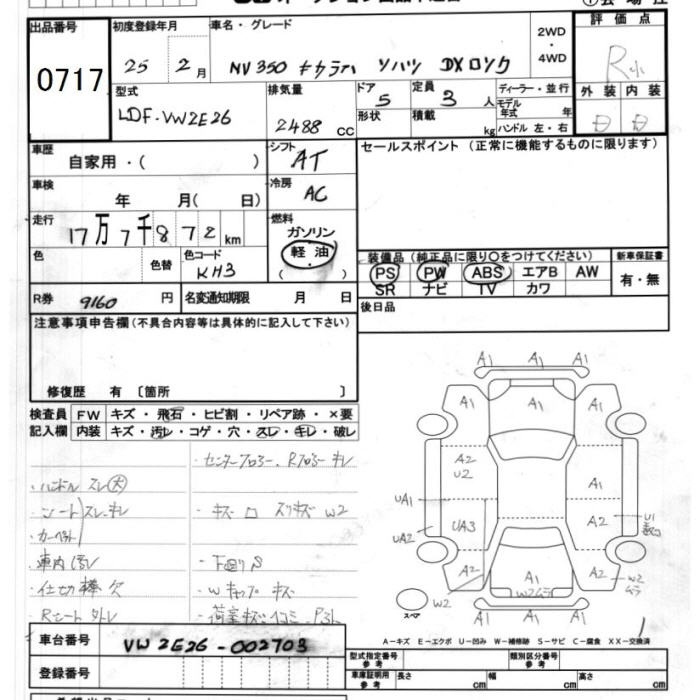 出品番号 初度登録年月 車名・グレード 2WD・4WD 評価点
0717 25 2月 NV350 キャラバン DXロング R
型式 排気量 ドア 定員 ディーラー・並行 外装 内装
LDF-VW2E26 2488 CC 5 3 人 モデル年式 年
形状 積載 kg ハンドル 左・右
車歴 自家用・( ) シフト AT セールスポイント (正常に機能するものに限ります)
車検 年 月( 日) 冷房 AC
走行 17万7千872km 燃料 ガソリン 軽油 ( )
色 色替 色コード KH3
装備品 (純正品に限り○をつけてください) 新車保証書
PS PW ABS エアB AW 有・無
SR ナビ TV カワ
R券 9160 円 名変通知期限 月 日 後日品
注意事項申告欄(不具合内容等は具体的に記入して下さい)
修復歴 有 〔箇所 〕
検査員 FW キズ・飛石・ヒビ割・リペア跡・×要
記入欄 内装 キズ・汚レ・コゲ・穴・スレ・キレ・破レ
・ハンドル スレ 大
・シート スレ・キレ
・カーペット
・車内 汚レ
・Rシート 外レ
・キズ W2
・下回り S
・Wキャップ キズ
A1 A1 A1
A1 A1 A1
A2 U2 A1
UA1 UA3 A2 U1
UA2
A2 A1 A2 W2
W2
A1 A1 A1
スペア
A-キズ E-エクボ U-凹み W-補修跡 S-サビ C-腐食 XX-交換済
車台番号 VW2E26-002703
登録番号
型式指定番号 参考 類別区分番号 参考
車庫証明用 参考 長さ cm 幅 cm 高さ cm